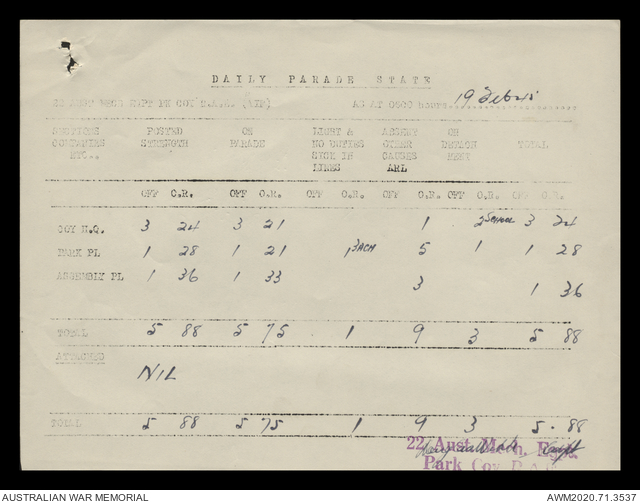 DAILY PARADE STATE
22 AUST MECH EQPT PK COY R.A.E. (AIF) AS AT 0600 hours 19 Feb 45
SECTIONS POSTED ON LIGHT & ABSENT ON
COMPANIES STRENGTH PARADE NO DUTIES OTHER DETACH TOTAL
ETC.. SICK IN CAUSES MENT
LINES ARL
OFF O.R. OFF O.R. OFF O.R. OFF O.R. OFF O.R. OFF O.R.
COY H.Q. 3 24 3 21 1 2 SCHOOL 3 24
PARK PL 1 28 1 21 1 5 1 1 28
ASSEMBLY PL 1 36 1 33 3 1 36
TOTAL 5 88 5 75 1 9 3 5 88
ATTACHED
NIL
TOTAL 5 88 5 75 1 9 3 5 . 88
22 Aust. Mech. Eqpt.
Capt
Park Coy R.A.E.
AUSTRALIAN WAR MEMORIAL AWM2020.71.3537